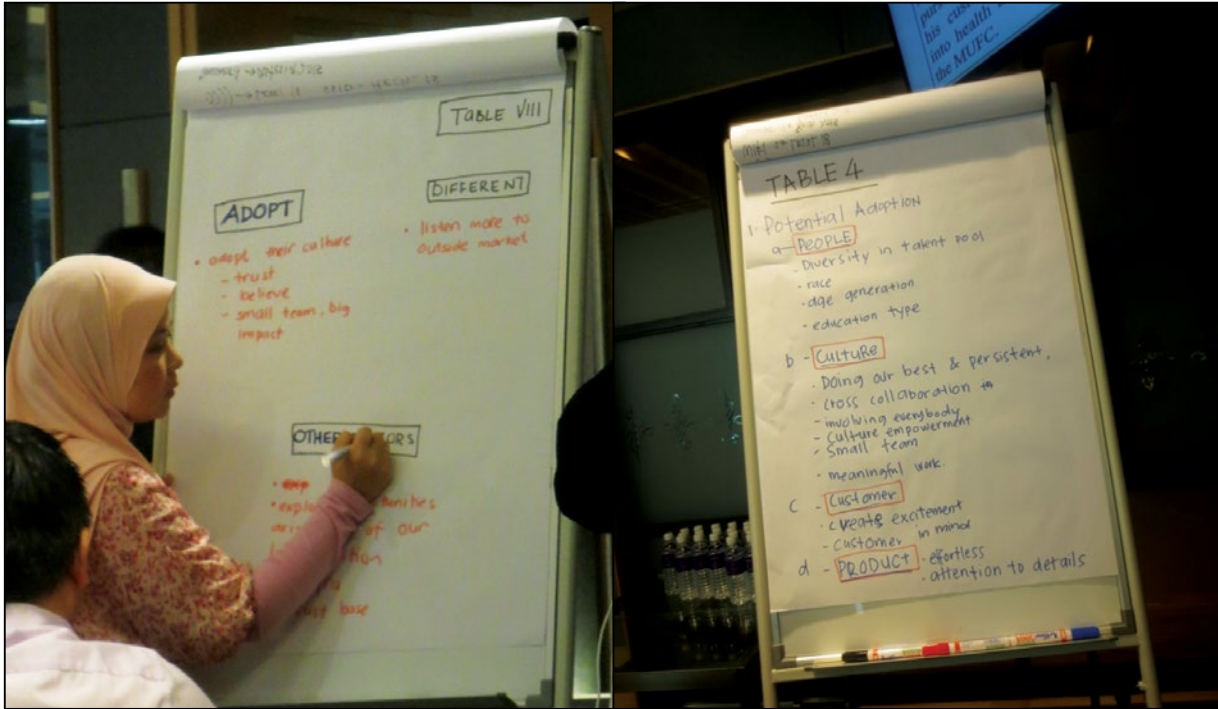 TABLE VIII
ADOPT
• adopt their culture
- trust
- believe
- small team, big
impact
DIFFERENT
• listen more to
outside market
OTHER
of our
base
his
into health
the MUFC.
TABLE 4
1. Potential Adoption
a - PEOPLE
- Diversity in talent pool
- race
- age generation
- education type
b - CULTURE
• Doing our best & persistent,
• cross collaboration
involving everybody
- Culture empowerment
- Small team
• meaningful work.
c - Customer
• Create excitement
- Customer in mind
d - PRODUCT - effortless
- attention to details